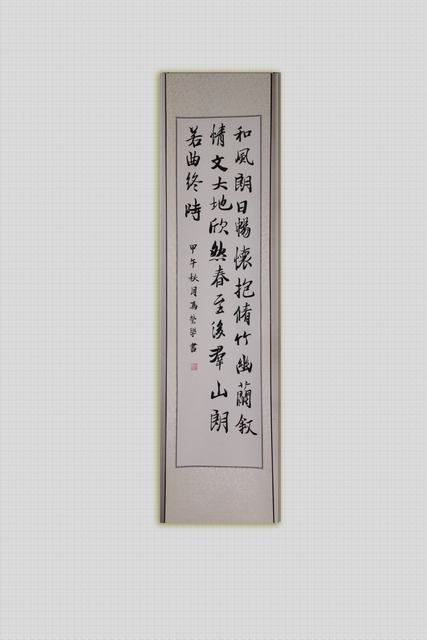 和風朗日暢懷抱脩竹幽蘭叙
情文大地欣然春至後羣山朗
若曲終時
甲午秋月學書